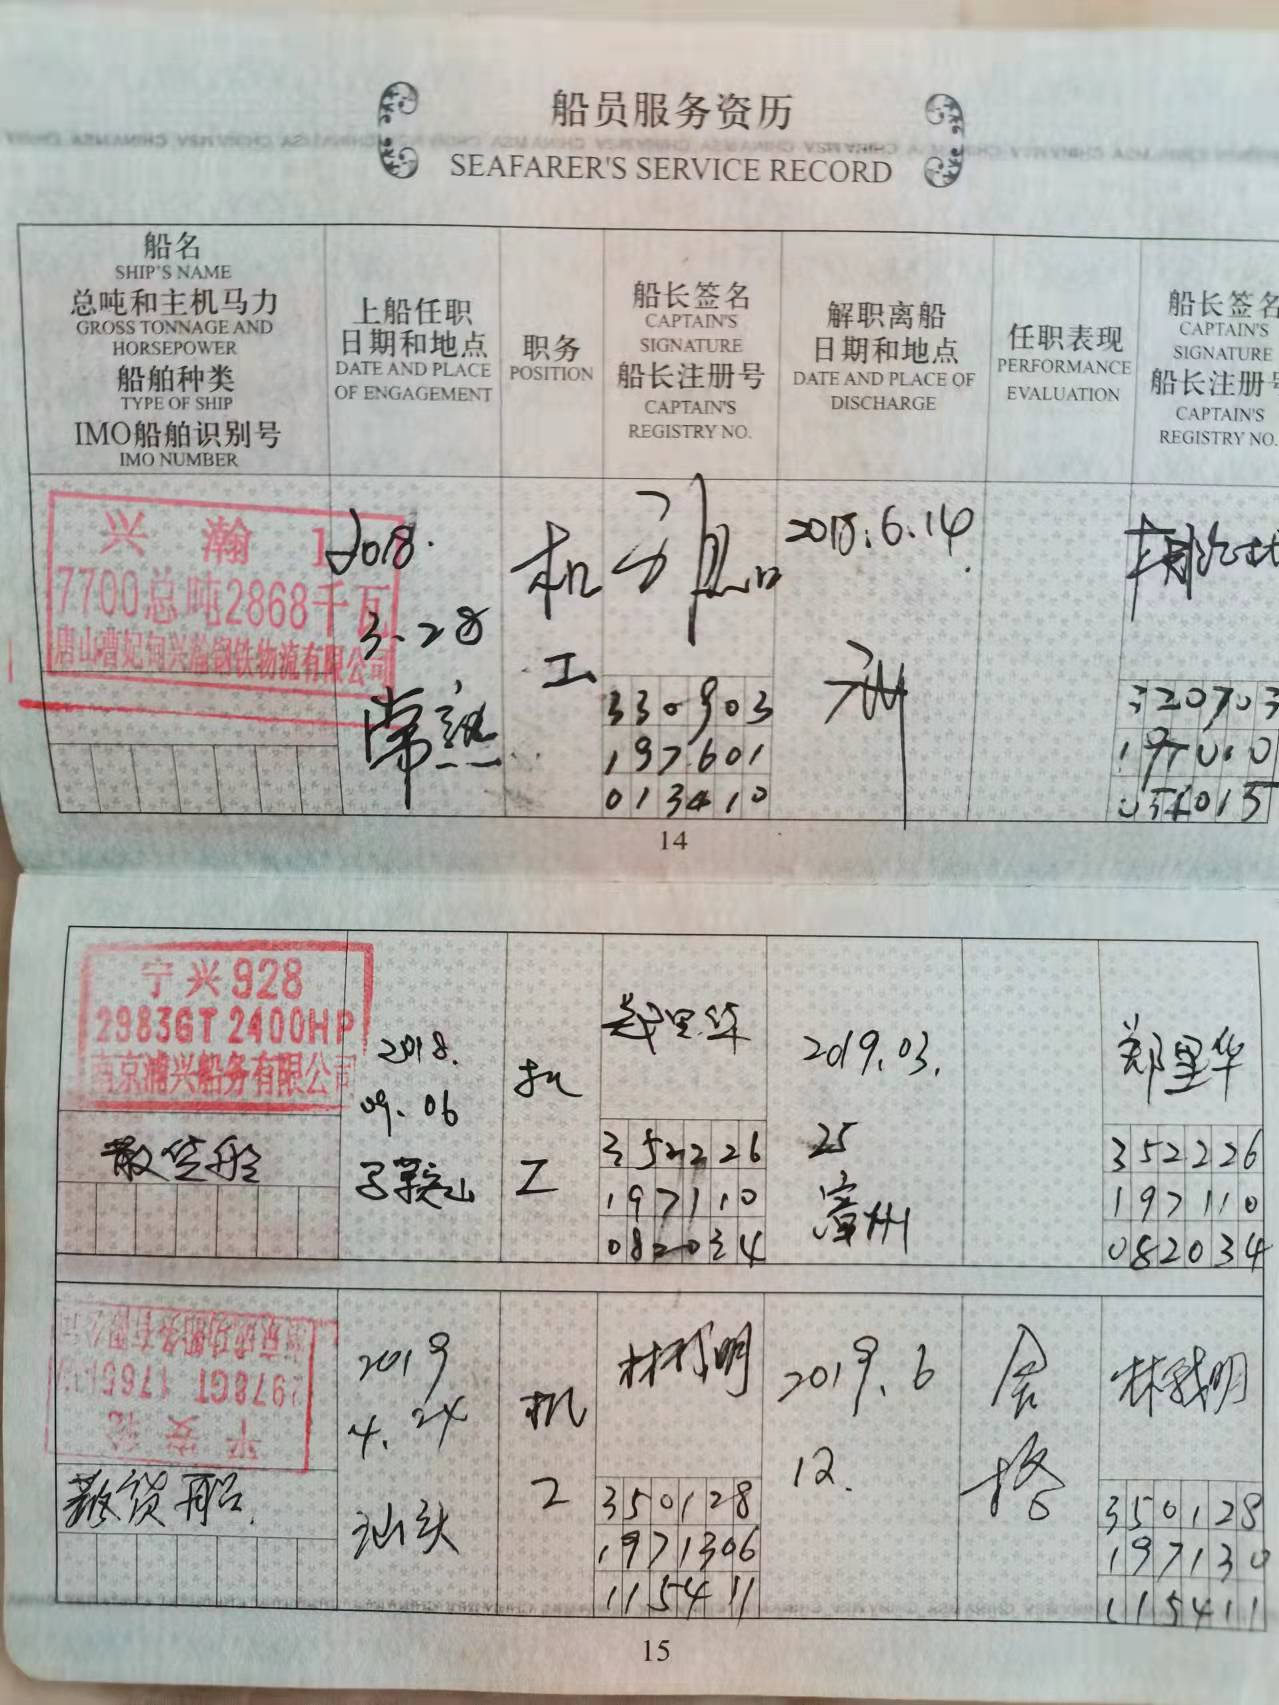 船员服务资历
SEAFARER'S SERVICE RECORD
船名
SHIP'S NAME
总吨和主机马力
GROSS TONNAGE AND
HORSEPOWER
船舶种类
TYPE OF SHIP
IMO船舶识别号
IMO NUMBER
上船任职
日期和地点
DATE AND PLACE
OF ENGAGEMENT
职务
POSITION
船长签名
CAPTAIN'S
SIGNATURE
船长注册号
CAPTAIN'S
REGISTRY NO.
解职离船
日期和地点
DATE AND PLACE OF
DISCHARGE
任职表现
PERFORMANCE
EVALUATION
船长签名
CAPTAIN'S
SIGNATURE
船长注册号
CAPTAIN'S
REGISTRY NO.
兴瀚1
7700总吨2868千瓦
唐山曹妃甸兴瀚钢铁物流有限公司
2018.
3.28
常熟
机
工
330903
197601
013410
2018.6.14
320703
14
宁兴928
2983GT 2400HP
南京浦兴船务有限公司
散货船
2018.
09.06
马鞍山
机
工
郑里华
352226
197110
082034
2019.03.
25
漳州
郑里华
352226
197110
082034
平安轮
2978GT 1765
散货船
2019
4.24
汕头
机
工
350128
1971306
115411
2019.6
12.
合
格
350128
197130
115411
15